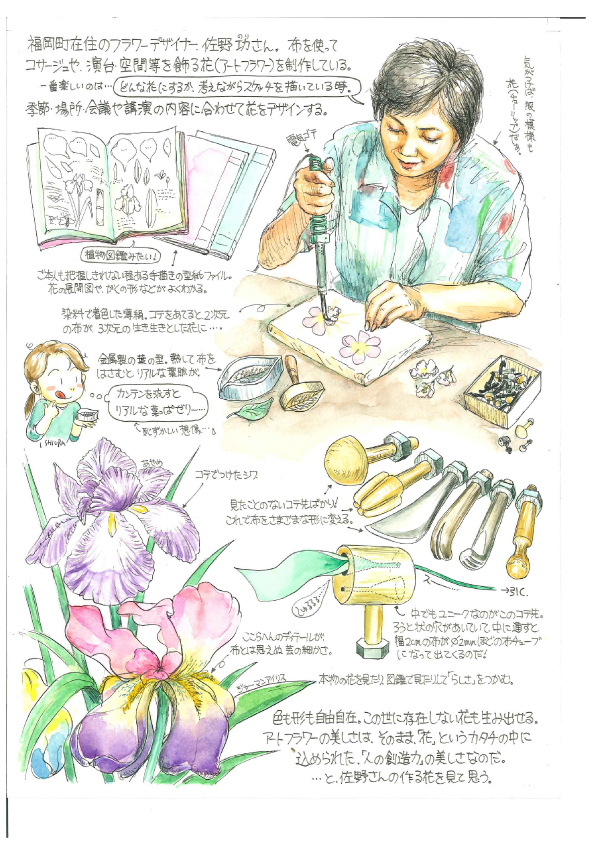 福岡町在住のフラワーデザイナー、佐野功さん。布を使って
コサージュや、演台・空間等を飾る花(アートフラワー)を制作している。
一番楽しいのは…どんな花にするか、考えながらスケッチを描いている時。
季節・場所・会議や講演の内容に合わせて花をデザインする。
電気ゴテ
植物図鑑みたい!
花の展開図や、がくの形などがよくわかる。
染料で着色した薄絹。コテをあてると、2次元
の布が3次元の生き生きとした花に…。
金属製の葉の型。熱して布を
はさむと、リアルな葉脈が。
カンテンを流すと
リアルな葉っぱゼリー……
恥ずかしい想像…。
SHIURA
あやめ
コテでつけたシワ
見たことのないコテ先ばかり!
これで布をさまざまな形に変える。
しゅるるる
→引く。
中でもユニークなのがこのコテ先。
ろうと状の穴があいていて、中に通すと
幅2cmの布がφ2mmほどの布チューブ
になって出てくるのだ!
ここらへんのディテールが、
布とは思えぬ芸の細かさ。
ジャーマンアイリス
本物の花を見たり、図鑑で見たりして「らしさ」をつかむ。
色も形も自由自在。この世に存在しない花も生み出せる。
アートフラワーの美しさは、そのまま、「花」というカタチの中に
込められた、「人の創造力」の美しさなのだ。
…と、佐野さんの作る花を見て思う。